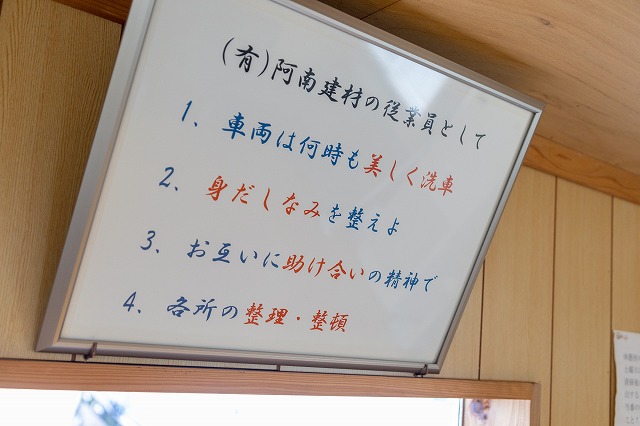 (有)阿南建材の従業員として
1. 車両は何時も美しく洗車
2. 身だしなみを整えよ
3. お互いに助け合いの精神で
4. 各所の整理・整頓